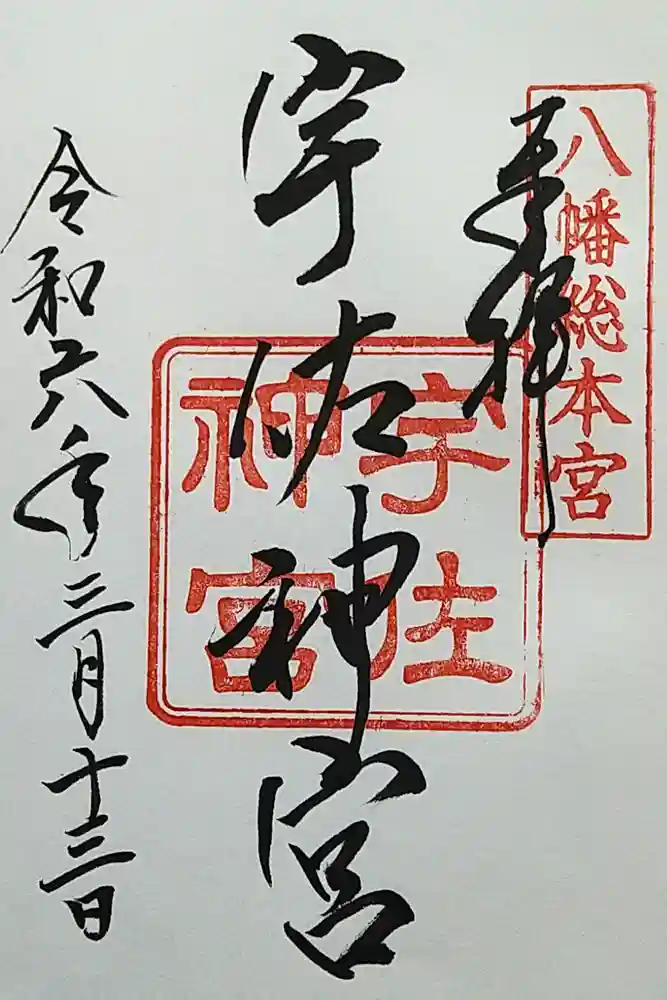 八幡総本宮
奉拝
宇佐神宮
宇佐
神宮
令和六年三月十三日